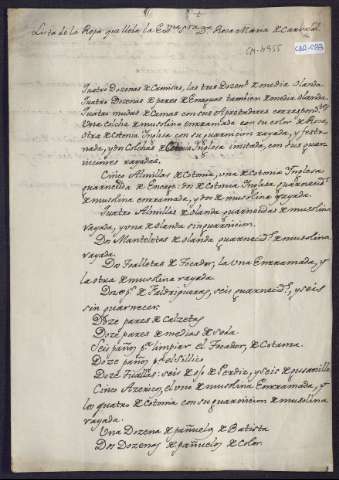 Lista de la Ropa que lleva la Exma Sra Da Rosa Maria de Carvajal
CM-4955
Quatro Dozenas de Camisas, las tres Dozens de media olanda
Quatro Dozenas de pares de Enaguas tambien de media olanda
Quatro mudas de Camas con sus Apretadores
Una colcha de musolina enramada con su color de Rosa,
otra de Cotonia Inglesa con su guarnicion rayada, y
y dos Colchas de Cotonia Inglesa imitada, con sus guar
niciones rayadas.
Cinco Almillas de Cotonia, una de Cotonia Inglesa
guarnecida de Encage: dos de Cotonia Inglesa guarnecids
de musolina enramada, y dos de musolina rayada.
Quatro Almillas de olanda guarnecidas de musolina
rayada, y una de olanda sin guarnicion.
Dos Manteletas de olanda guarnecids de musolina
rayada.
Dos Toalletas de Tocador, la una Enramada, y
la otra de musolina rayada.
Doze ps de Faldriqueras, seis guarnecids, y seis
sin guarnecer.
Doze pares de Calzetas
Doze pares de medias de seda
Seis paños pa limpiar el Tocador, de Cotanza.
Doze paños pa el
Doze Fiallos: seis de y seis de
Cinco Azericos, el uno de musolina Enramada, y
los quatro de Cotonia con su guarnicion de musolina
rayada.
Una Dozena de pañuelos de Batista
Dos Dozenas de pañuelos de Color.